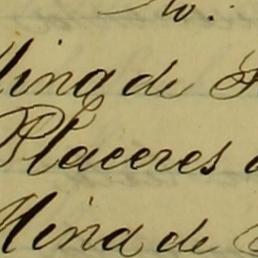 Mina de
Placeres
Mina de